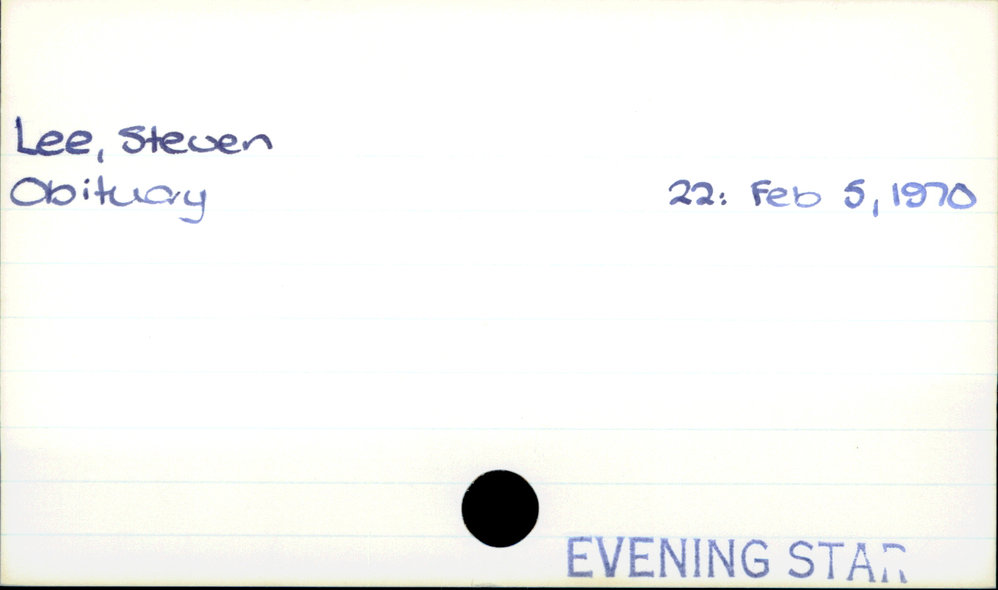 Lee, Steven
Obituary 22: Feb 5, 1970
EVENING STAR